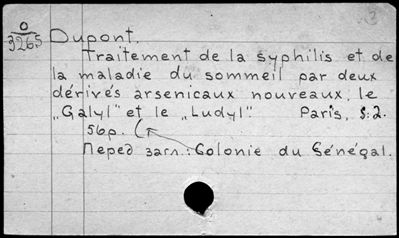 O
3265
Dupont.
Traitement de la syphilis et de
la maladie du sommeil par deux
dérivés arsenicaux nouveaux, le
„Galyl" et le „Ludyl". Paris, S:2.
56p.
Перед загл.: Colonie du Sénégal.